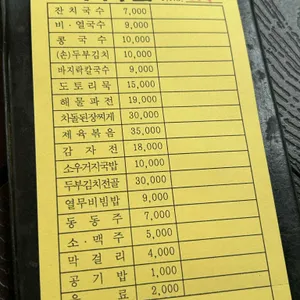 잔치국수 7,000
비·열국수 9,000
콩국수 10,000
(손)두부김치 10,000
바지락칼국수 9,000
도토리묵 15,000
해물파전 19,000
차돌된장찌게 30,000
제육볶음 35,000
감자전 18,000
소우거지국밥 10,000
두부김치전골 30,000
열무비빔밥 9,000
동동주 7,000
소·맥주 5,000
막걸리 4,000
공기밥 1,000
음료 2,000